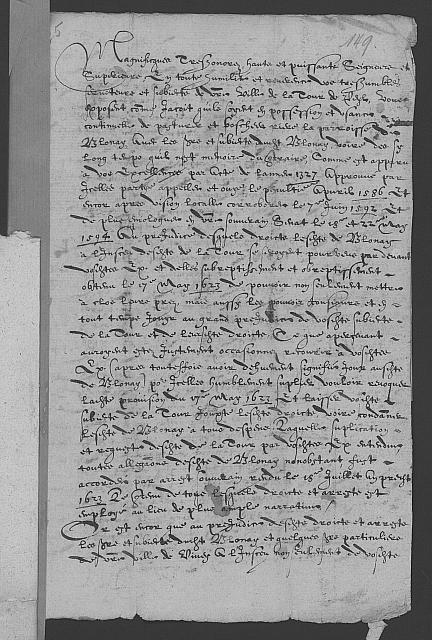 5 149.
Magnifiques Treshonorez hauts et puissants Seigneurs et
Superieurs En toute humilité et reverence vos treshumbles
serviteurs et subiects de vostre ville de la Tour de Peyl, vous
exposent comme jaçoit quils soyent en possession et
continuelle de pasturer et boscheyer riere la parroisse de
Blonay Avec les et subiects dudit Blonay voire des sy
long temps quil nest memoire du contraire, Comme est apparu
a vos Excellences par acte de lannee 1327 Approuvé par
icelles parties appellees et ouyes le penultie Apvril 1586 Et
encor apres vision locale corroborées le 7e Juin 1592 Et
de plus emologuees en vostre souverain Senat le 15e et 22e May
1594 Au prejudice desquels droicts lesdits de Blonay
a linsceu desdits de la Tour se pourveu par devant
vosdites Ex. et dicelles subreptissement et obreptissement
obtenu le 17e May 1623 de pouvoir non seulement mettre
a clos leurs prez, mais aussy les pouvoir et en
tout temps jouyr au grand prejudice de vosdits subiects
de la Tour et de leursdits droicts, Ce que apercevant
auroyent esté justement occasionnes recourir a vosdites
Ex. apres toutesfois avoir dehuement signifié jour ausdits
de Blonay pour icelles humblement suplier vouloir revoquer
ladite provision du 17e May 1623 Et laisser vosdits
subiects de la Tour jouyr lesdits droicts, voire condamner
lesdits de Blonay a tous despens, Laquelle suplication
et requeste desdits de la Tour par vosdites Ex entendue
toutes allegations desdits de Blonay nonobstant fust
accordee par arrest souverain rendu le 15e Juillet
1623 de tous lesquels droicts et arrests est
employé au lieu de plus ample narration,
Or est encor que au prejudice desdits droicts et arrests
les et subiects dudit Blonay et quelques particuliers
de vostre ville de Vivey A linsceu non seulement de vosdits